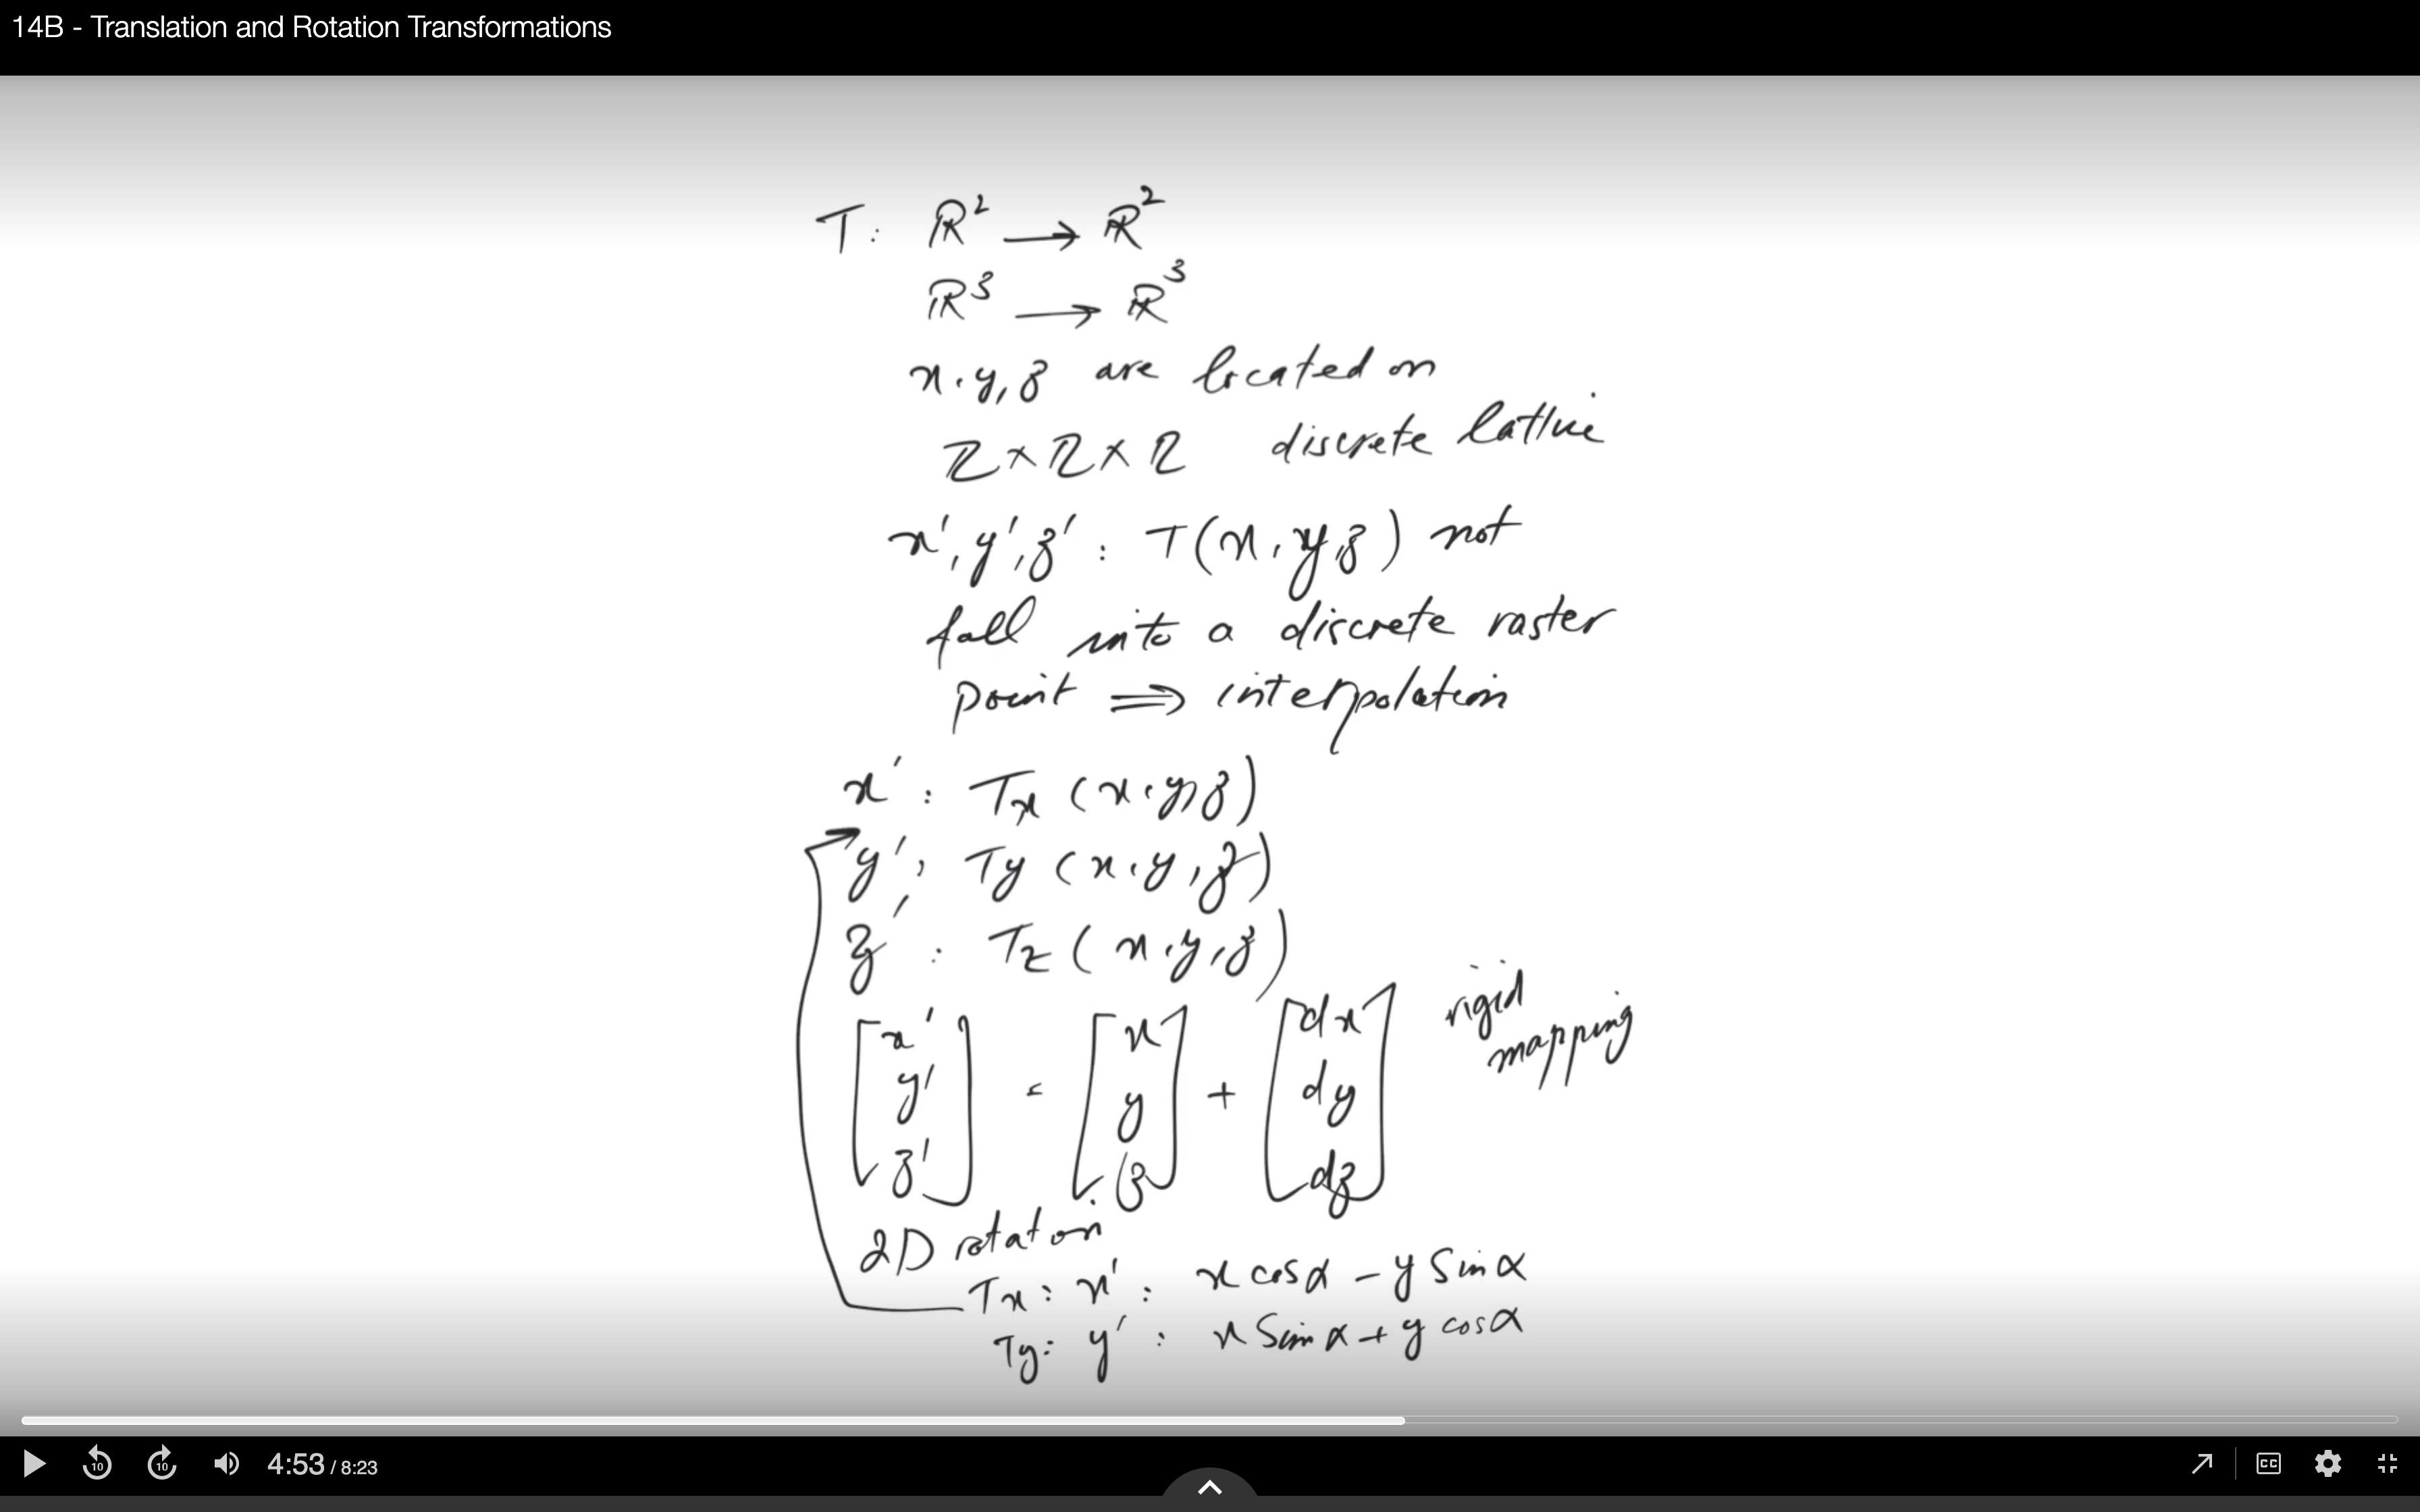 14B - Translation and Rotation Transformations
T: ℝ² ⟶ ℝ²
ℝ³ ⟶ ℝ³
x, y, z are located on
ℤ × ℤ × ℤ discrete lattice
x', y', z' : T(x, y, z) not
fall into a discrete raster
point ⟹ interpolation
x' : Tx (x, y, z)
y' : Ty (x, y, z)
z' : Tz (x, y, z)
[x' y' z'] = [x y z] + [dx dy dz]
rigid
mapping
2D rotation
Tx : x' : x cos α - y Sin α
Ty : y' : x Sin α + y cos α
10 10 4:53 / 8:23 CC